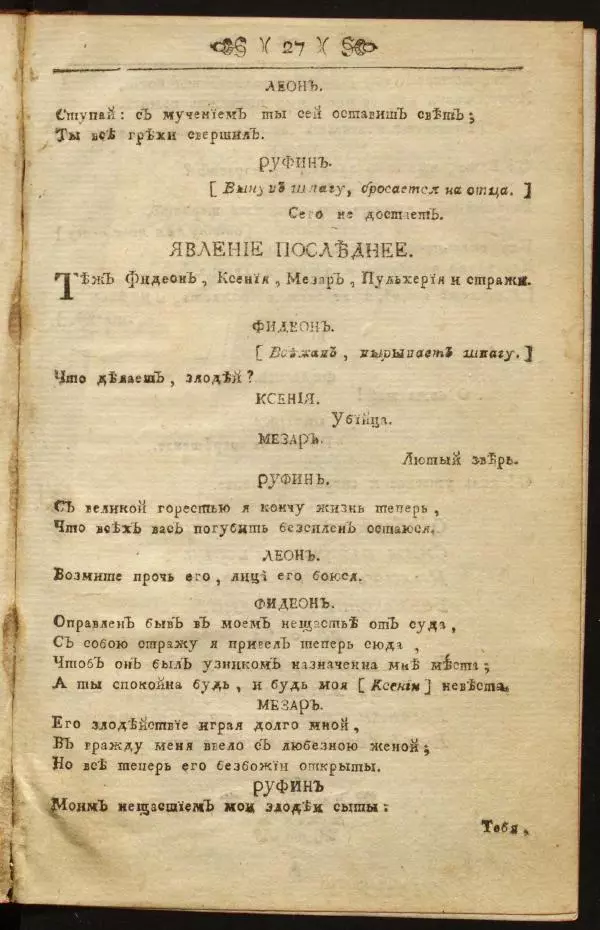 )( 27 )(
ЛЕОНЪ.
Ступай: съ мученїемъ ты сей оставишъ свѣтъ;
Ты всѣ грѣхи свершилъ.
РУФИНЪ.
[ Вынувъ шпагу, бросается на отца. ]
Сего не достаетъ.
ЯВЛЕНІЕ ПОСЛѢДНЕЕ.
Тѣжъ Фидеонъ, Ксенїя, Мезаръ, Пульхерїя и стражи.
ФИДЕОНЪ.
[ Вбѣжавъ, вырываетъ шпагу. ]
Что дѣлаешъ, злодѣй?
КСЕНІЯ.
Убїйца.
МЕЗАРЪ.
Лютый звѣрь.
РУФИНЪ.
Съ великой горестью я кончу жизнь теперь,
Что всѣхъ васъ погубить безсиленъ остаюся.
ЛЕОНЪ.
Возмите прочь его, лица его боюся.
ФИДЕОНЪ.
Оправленъ бывъ въ моемъ нещастьѣ отъ суда,
Съ собою стражу я привелъ теперь сюда,
Чтобъ онъ былъ узникомъ назначенна мнѣ мѣста;
А ты спокойна будь, и будь моя [ Ксенїи ] невѣста.
МЕЗАРЪ.
Его злодѣйствїе играя долго мной,
Въ вражду меня ввело съ любезною женой;
Но всѣ теперь его безбожїи открыты.
РУФИНЪ
Моимъ нещастїемъ мои злодѣи сыты:
Тебя,